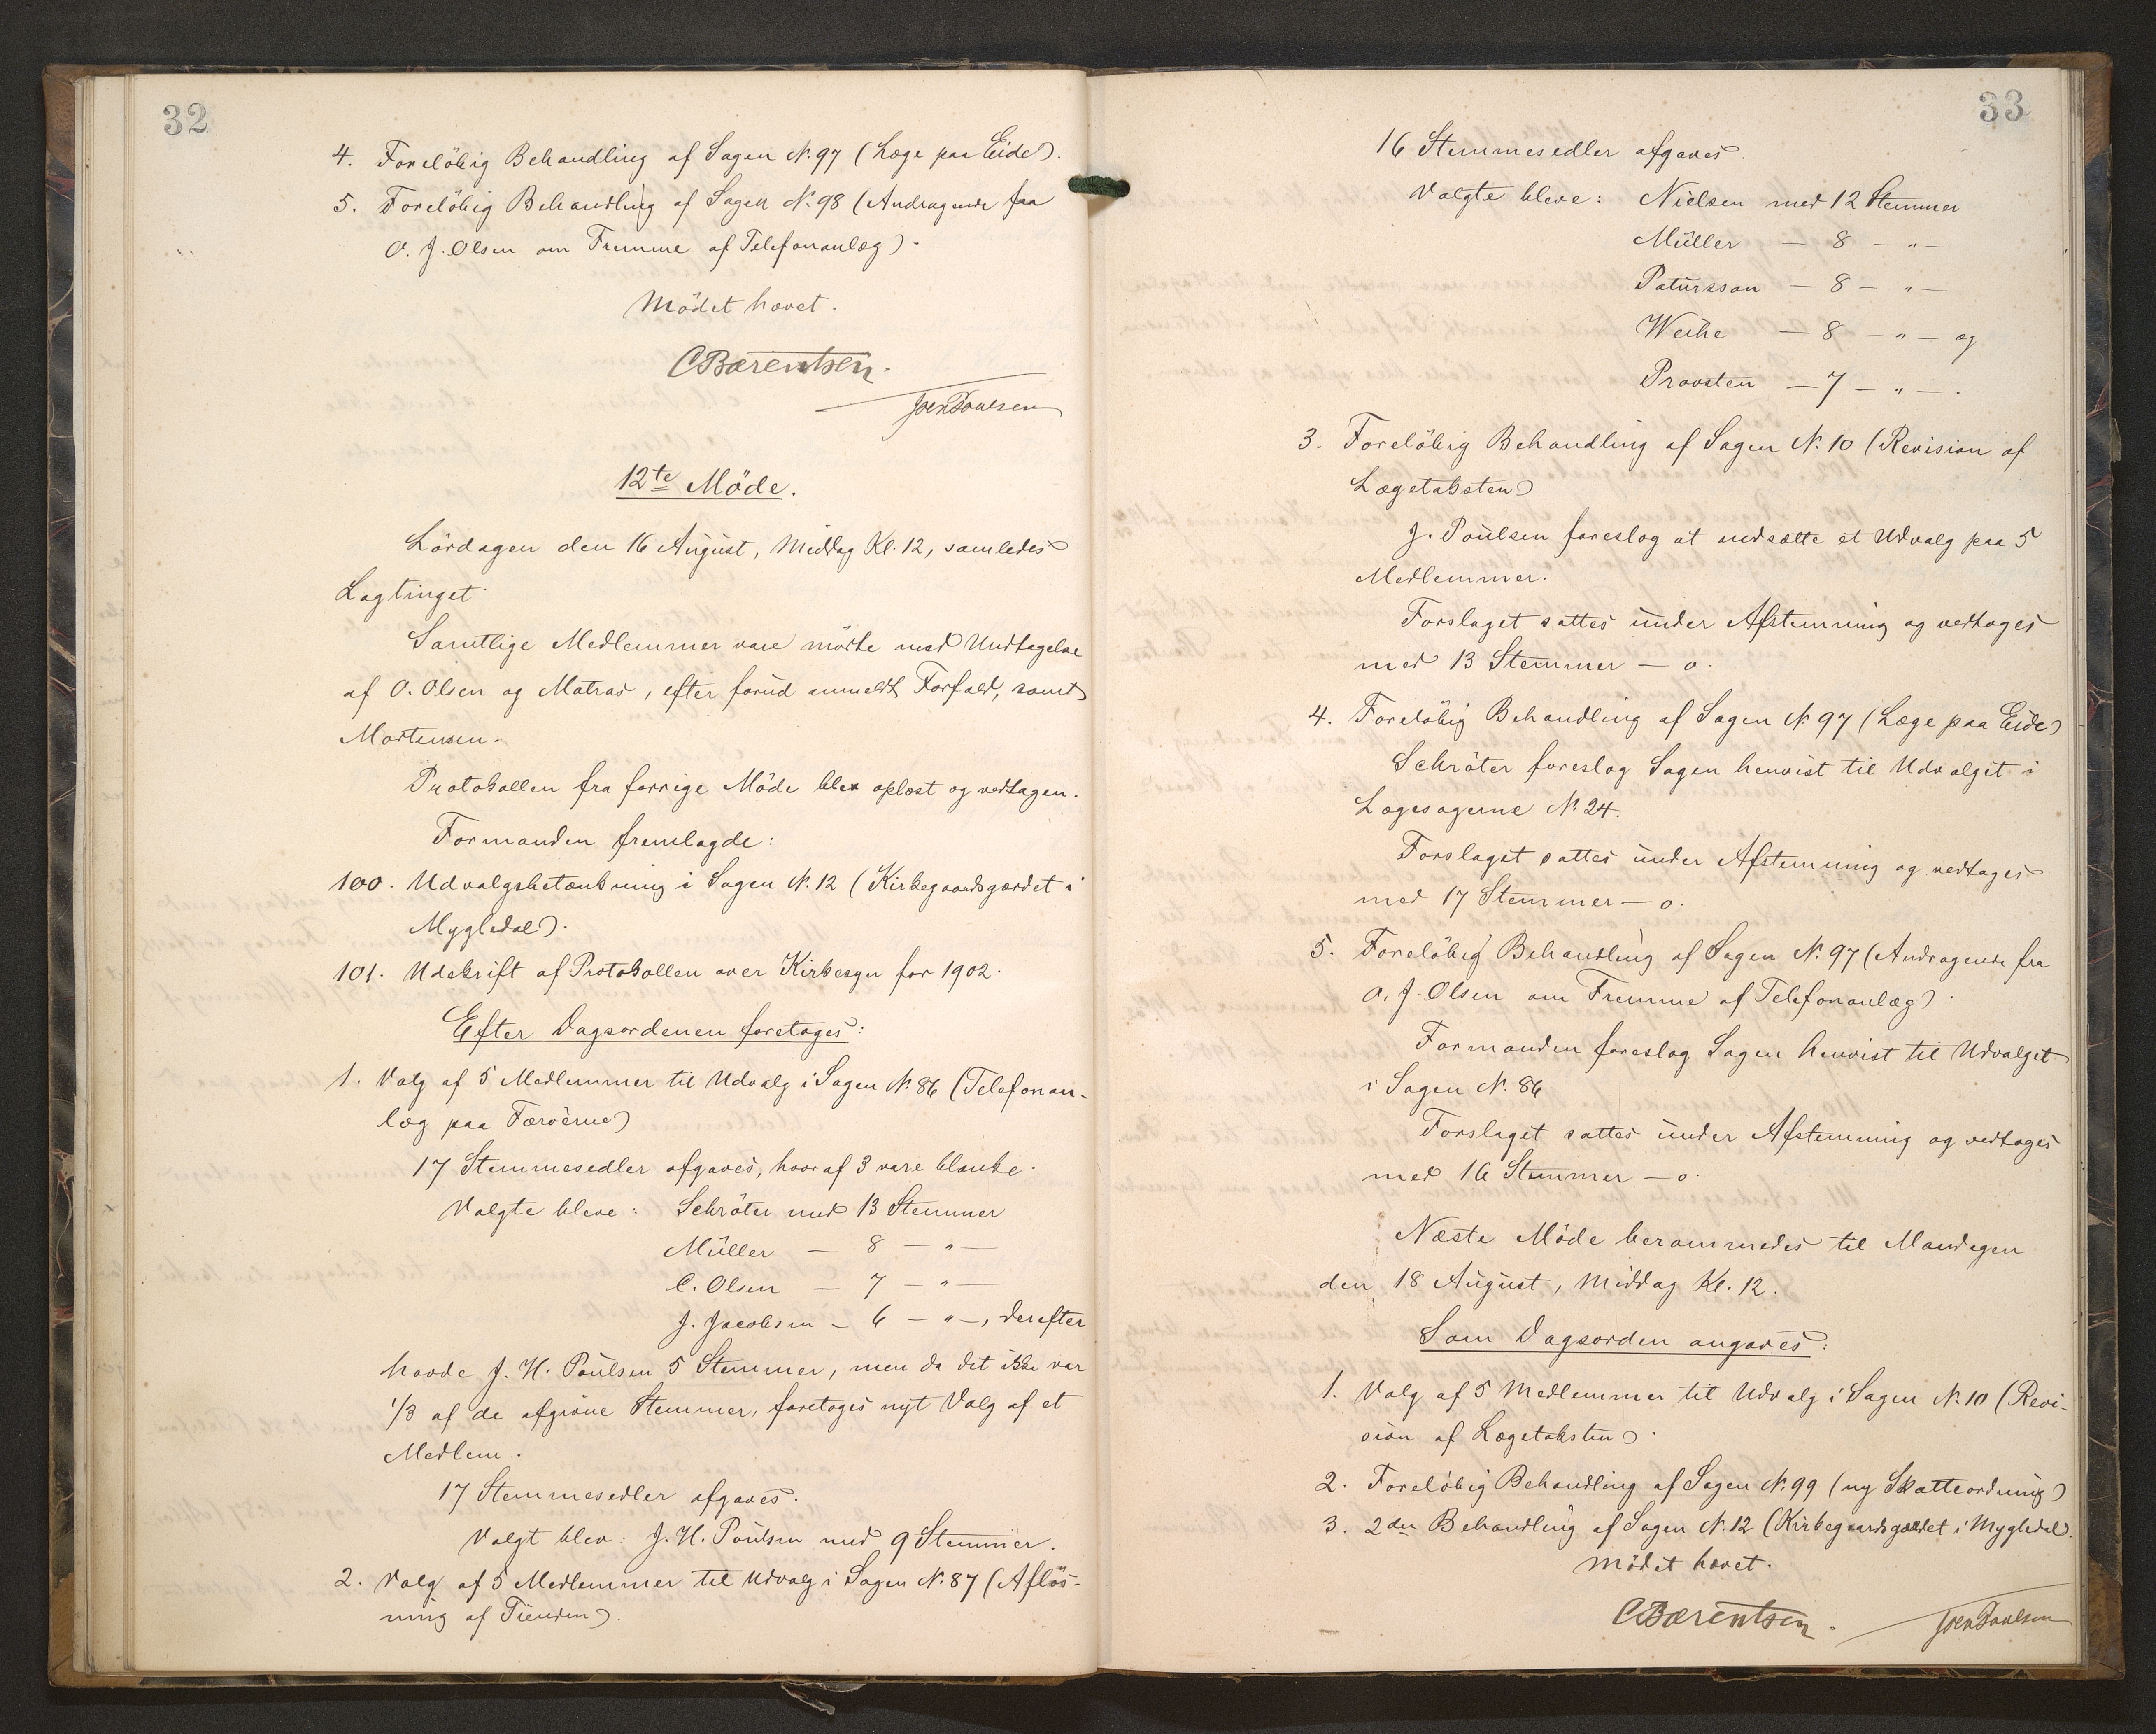 32
4. Forelöbig Behandling af Sagen N. 97 (Læge paa Eide).
5. Forelöbig Behandling af Sagen N. 98 (Andragende fra
O. J. Olsen om Fremme af Telefonanlæg).
Mödet hævet.
CBærentsen.
Joen Poulsen
12te Möde.
Lördagen den 16 August, Middag Kl. 12, samledes
Lagtinget.
Samtlige Medlemmer vare mödte med Undtagelse
af O. Olsen og Matras, efter forud anmeldt Forfald, samt
Mortensen.
Protokollen fra forrige Möde blev oplæst og vedtagen.
Formanden fremlagde:
100. Udvalgsbetænkning i Sagen N. 12 (Kirkegaardsgærdet i
Mygledal).
101. Udskrift af Protokollen over Kirkesyn for 1902.
Efter Dagsordenen foretoges:
1. Valg af 5 Medlemmer til Udvalg i Sagen N. 86 (Telefonan-
læg paa Færöerne)
17 Stemmesedler afgaves, hvoraf 3 vare blanke.
Valgte bleve: Schröter med 13 Stemmer
Müller — 8 — " —
C. Olsen — 7 — " —
J. Jacobsen — 6 — " —, derefter
havde J. H. Poulsen 5 Stemmer, men da det ikke var
1/3 af de afgivne Stemmer, foretoges nyt Valg af et
Medlem.
17 Stemmesedler afgaves.
Valgt blev: J. H. Poulsen med 9 Stemmer.
2. Valg af 5 Medlemmer til Udvalg i Sagen N. 87 (Aflös-
ning af Tienden).
33
16 Stemmesedler afgaves.
Valgte bleve: Nielsen med 12 Stemmer
Müller — 8 — " —
Patursson — 8 — " —
Weihe — 8 — " — og
Provsten — 7 — " — .
3. Forelöbig Behandling af Sagen N. 10 (Revision af
Lægetaksten)
J. Poulsen foreslog at nedsætte et Udvalg paa 5
Medlemmer.
Forslaget sattes under Afstemning og vedtoges
med 13 Stemmer — o.
4. Forelöbig Behandling af Sagen N. 97 (Læge paa Eide)
Schröter foreslog Sagen henvist til Udvalget i
Lægesagerne N. 24.
Forslaget sattes under Afstemning og vedtoges
med 17 Stemmer — o.
5. Forelöbig Behandling af Sagen N. 97 (Andragende fra
O. J. Olsen om Fremme af Telefonanlæg).
Formanden foreslog Sagen henvist til Udvalget
i Sagen N. 86
Forslaget sattes under Afstemning og vedtoges
med 16 Stemmer — o.
Næste Möde berammedes til Mandagen
den 18 August, Middag Kl. 12.
Som Dagsorden angaves:
1. Valg af 5 Medlemmer til Udvalg i Sagen N. 10 (Revi-
sion af Lægetaksten).
2. Forelöbig Behandling af Sagen N. 99 (ny Skatteordning)
3. 2den Behandling af Sagen N. 12 (Kirkegaardsgærdet i Mygledal).
Mödet hævet.
CBærentsen.
Joen Poulsen